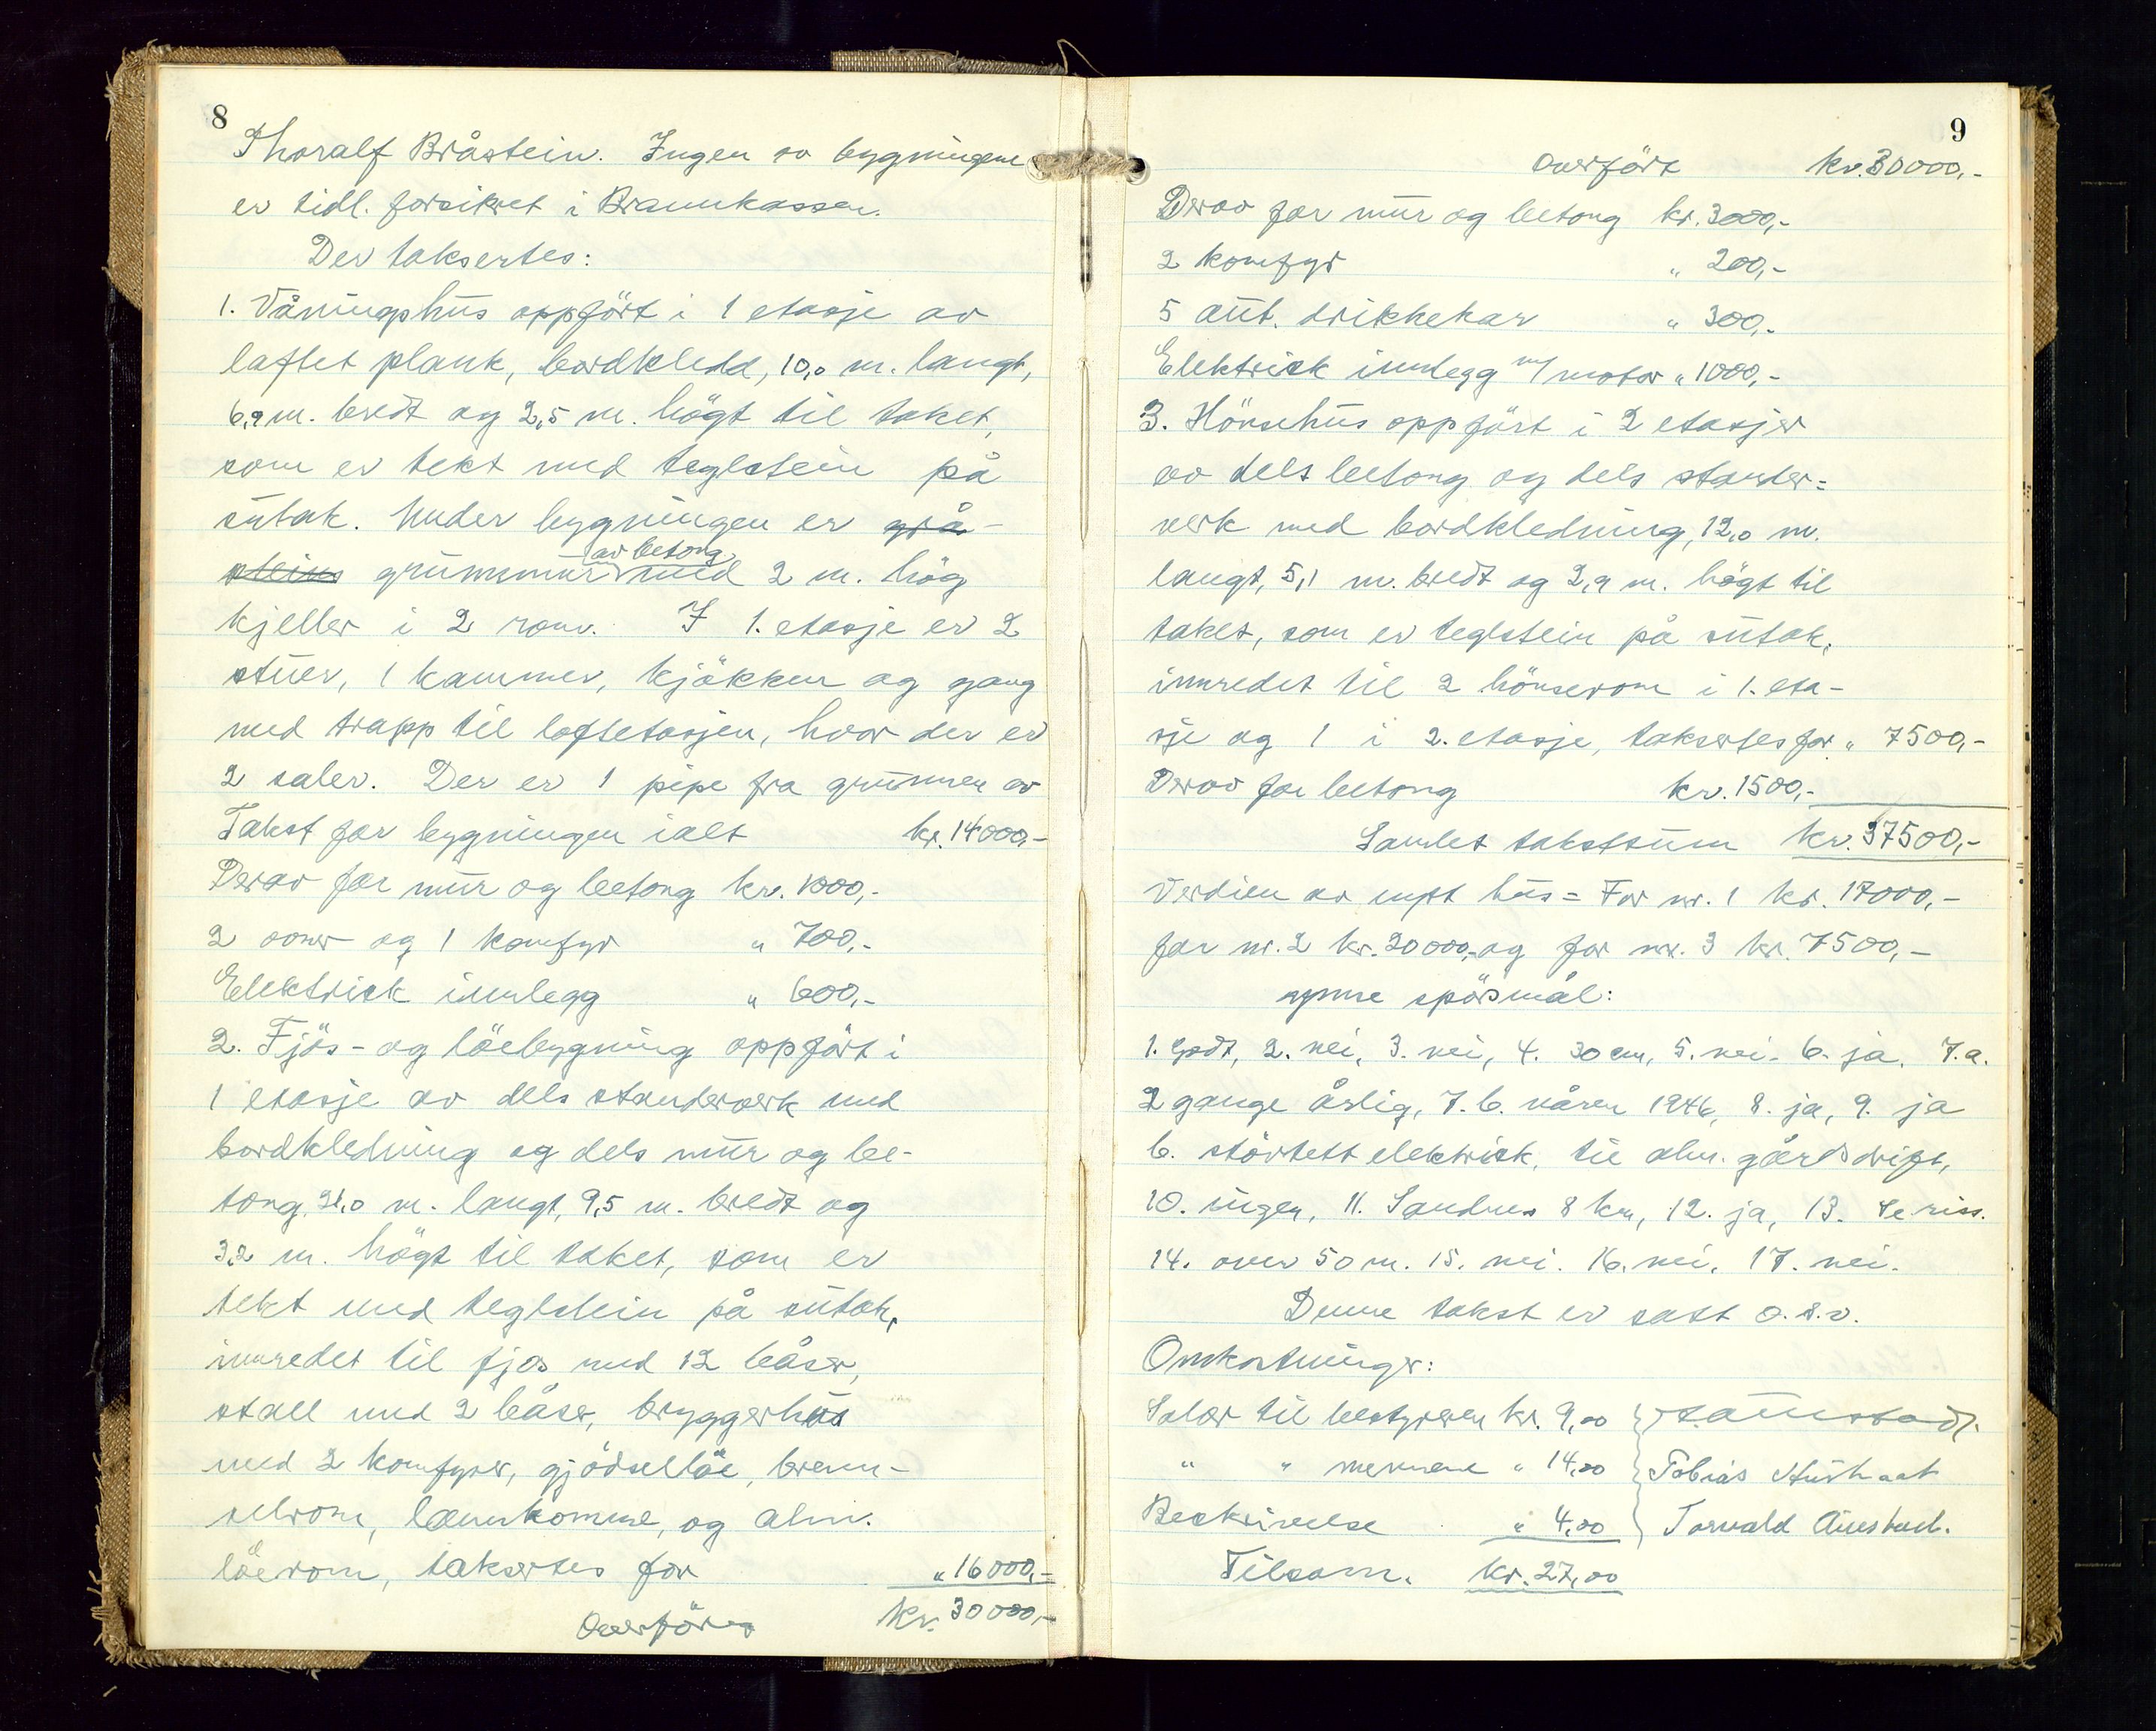 8
Thoralf Bråstein. Ingen av bygningene
er tidl. forsikret i Brannkassen.
Der taksertes:
1. Våningshus oppfört i 1 etasje av
laftet plank, bordkledd, 10,0 m. langt,
6,9 m. bredt og 2,5 m. högt til taket,
som er tekt med teglstein på
sutak. Under bygningen er grå-
steins grunnmur av betong med 2 m. hög
kjeller i 2 rom. I 1. etasje er 2
stuer, 1 kammer, kjökken og gang
med trapp til loftetasjen, hvor der er
2 saler. Der er 1 pipe fra grunnen av
Takst for bygningen ialt kr. 14000,-
Derav for mur og betong kr. 1000,-
2 ovner og 1 komfyr " 700,-
Elektrisk innlegg " 600,-
2. Fjös- og löebygning oppfört i
1 etasje av dels standerverk med
bordkledning og dels mur og be-
tong, 21,0 m. langt, 9,5 m. bredt og
3,2 m. högt til taket, som er
tekt med teglstein på sutak,
innredet til fjös med 12 båser,
stall med 2 båser, bryggerhus
med 2 komfyrer, gjödsellöe, bren-
selrom, lannkomme, og alm.
löerom, taksertes for " 16000,-
Overföres kr. 30000,-
9
Overfört kr. 30000,-
Derav for mur og betong kr. 3000,-
2 komfyr " 200,-
5 aut. drikkekar " 300,-
Elektrisk innlegg m/ motor " 1000,-
3. Hönsehus oppfört i 2 etasjer
av dels betong og dels stander=
verk med bordkledning, 12,0 m.
langt, 5,1 m. bredt og 2,9 m. högt til
taket, som er teglstein på sutak,
innredet til 2 hönserom i 1. eta-
sje og 1 i 2. etasje, taksertes for " 7500,-
Derav for betong kr. 1500,-
Samlet takstsum kr. 37500,-
Verdien av nytt hus = For nr. 1 kr. 17000,-
for nr. 2 kr. 20000,- og for nr. 3 kr. 7500,-
spörsmål:
1. Godt, 2. nei, 3. nei, 4. 30 cm, 5. nei. 6. ja. 7.a.
2 gange årlig, 7.b. våren 1946, 8. ja, 9. ja
b. störtett elektrisk, til alm. gårdsdrift,
10. ingen, 11. Sandnes 8 km, 12. ja, 13. Se riss.
14. over 50 m. 15. nei. 16. nei. 17. nei.
Denne takst er satt o.s.v.
Omkostninger:
Salær til bestyreren kr. 9,00
" " mennene " 14,00 Tobias
Beskrivelse " 4,00 Torvald
Tilsam. kr. 27,00